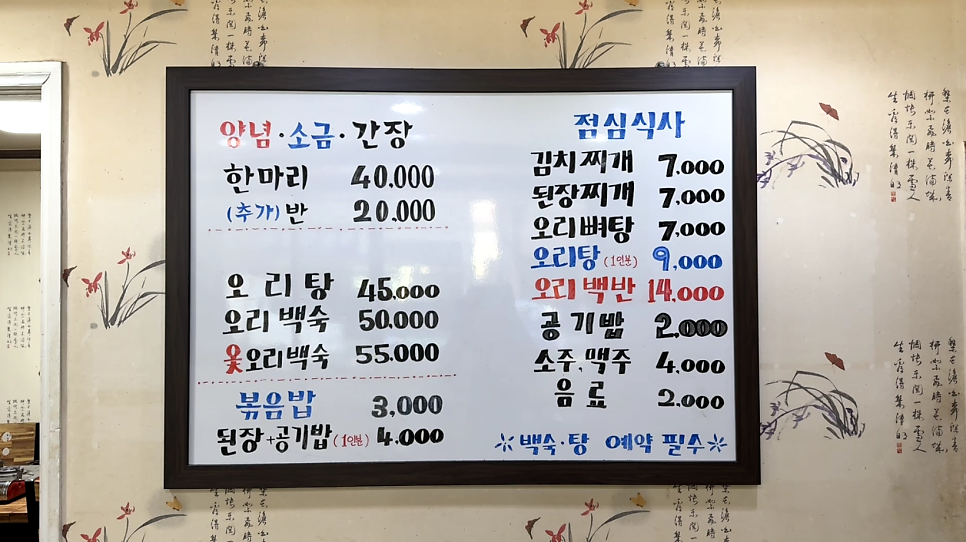 양념·소금·간장
한마리 40,000
(추가)반 20,000
오리탕 45,000
오리백숙 50,000
옻오리백숙 55,000
볶음밥 3,000
된장+공기밥(1인분) 4,000
점심식사
김치찌개 7,000
된장찌개 7,000
오리뼈탕 7,000
오리탕(1인분) 9,000
오리백반 14,000
공기밥 2,000
소주,맥주 4,000
음료 2,000
※백숙·탕 예약 필수※